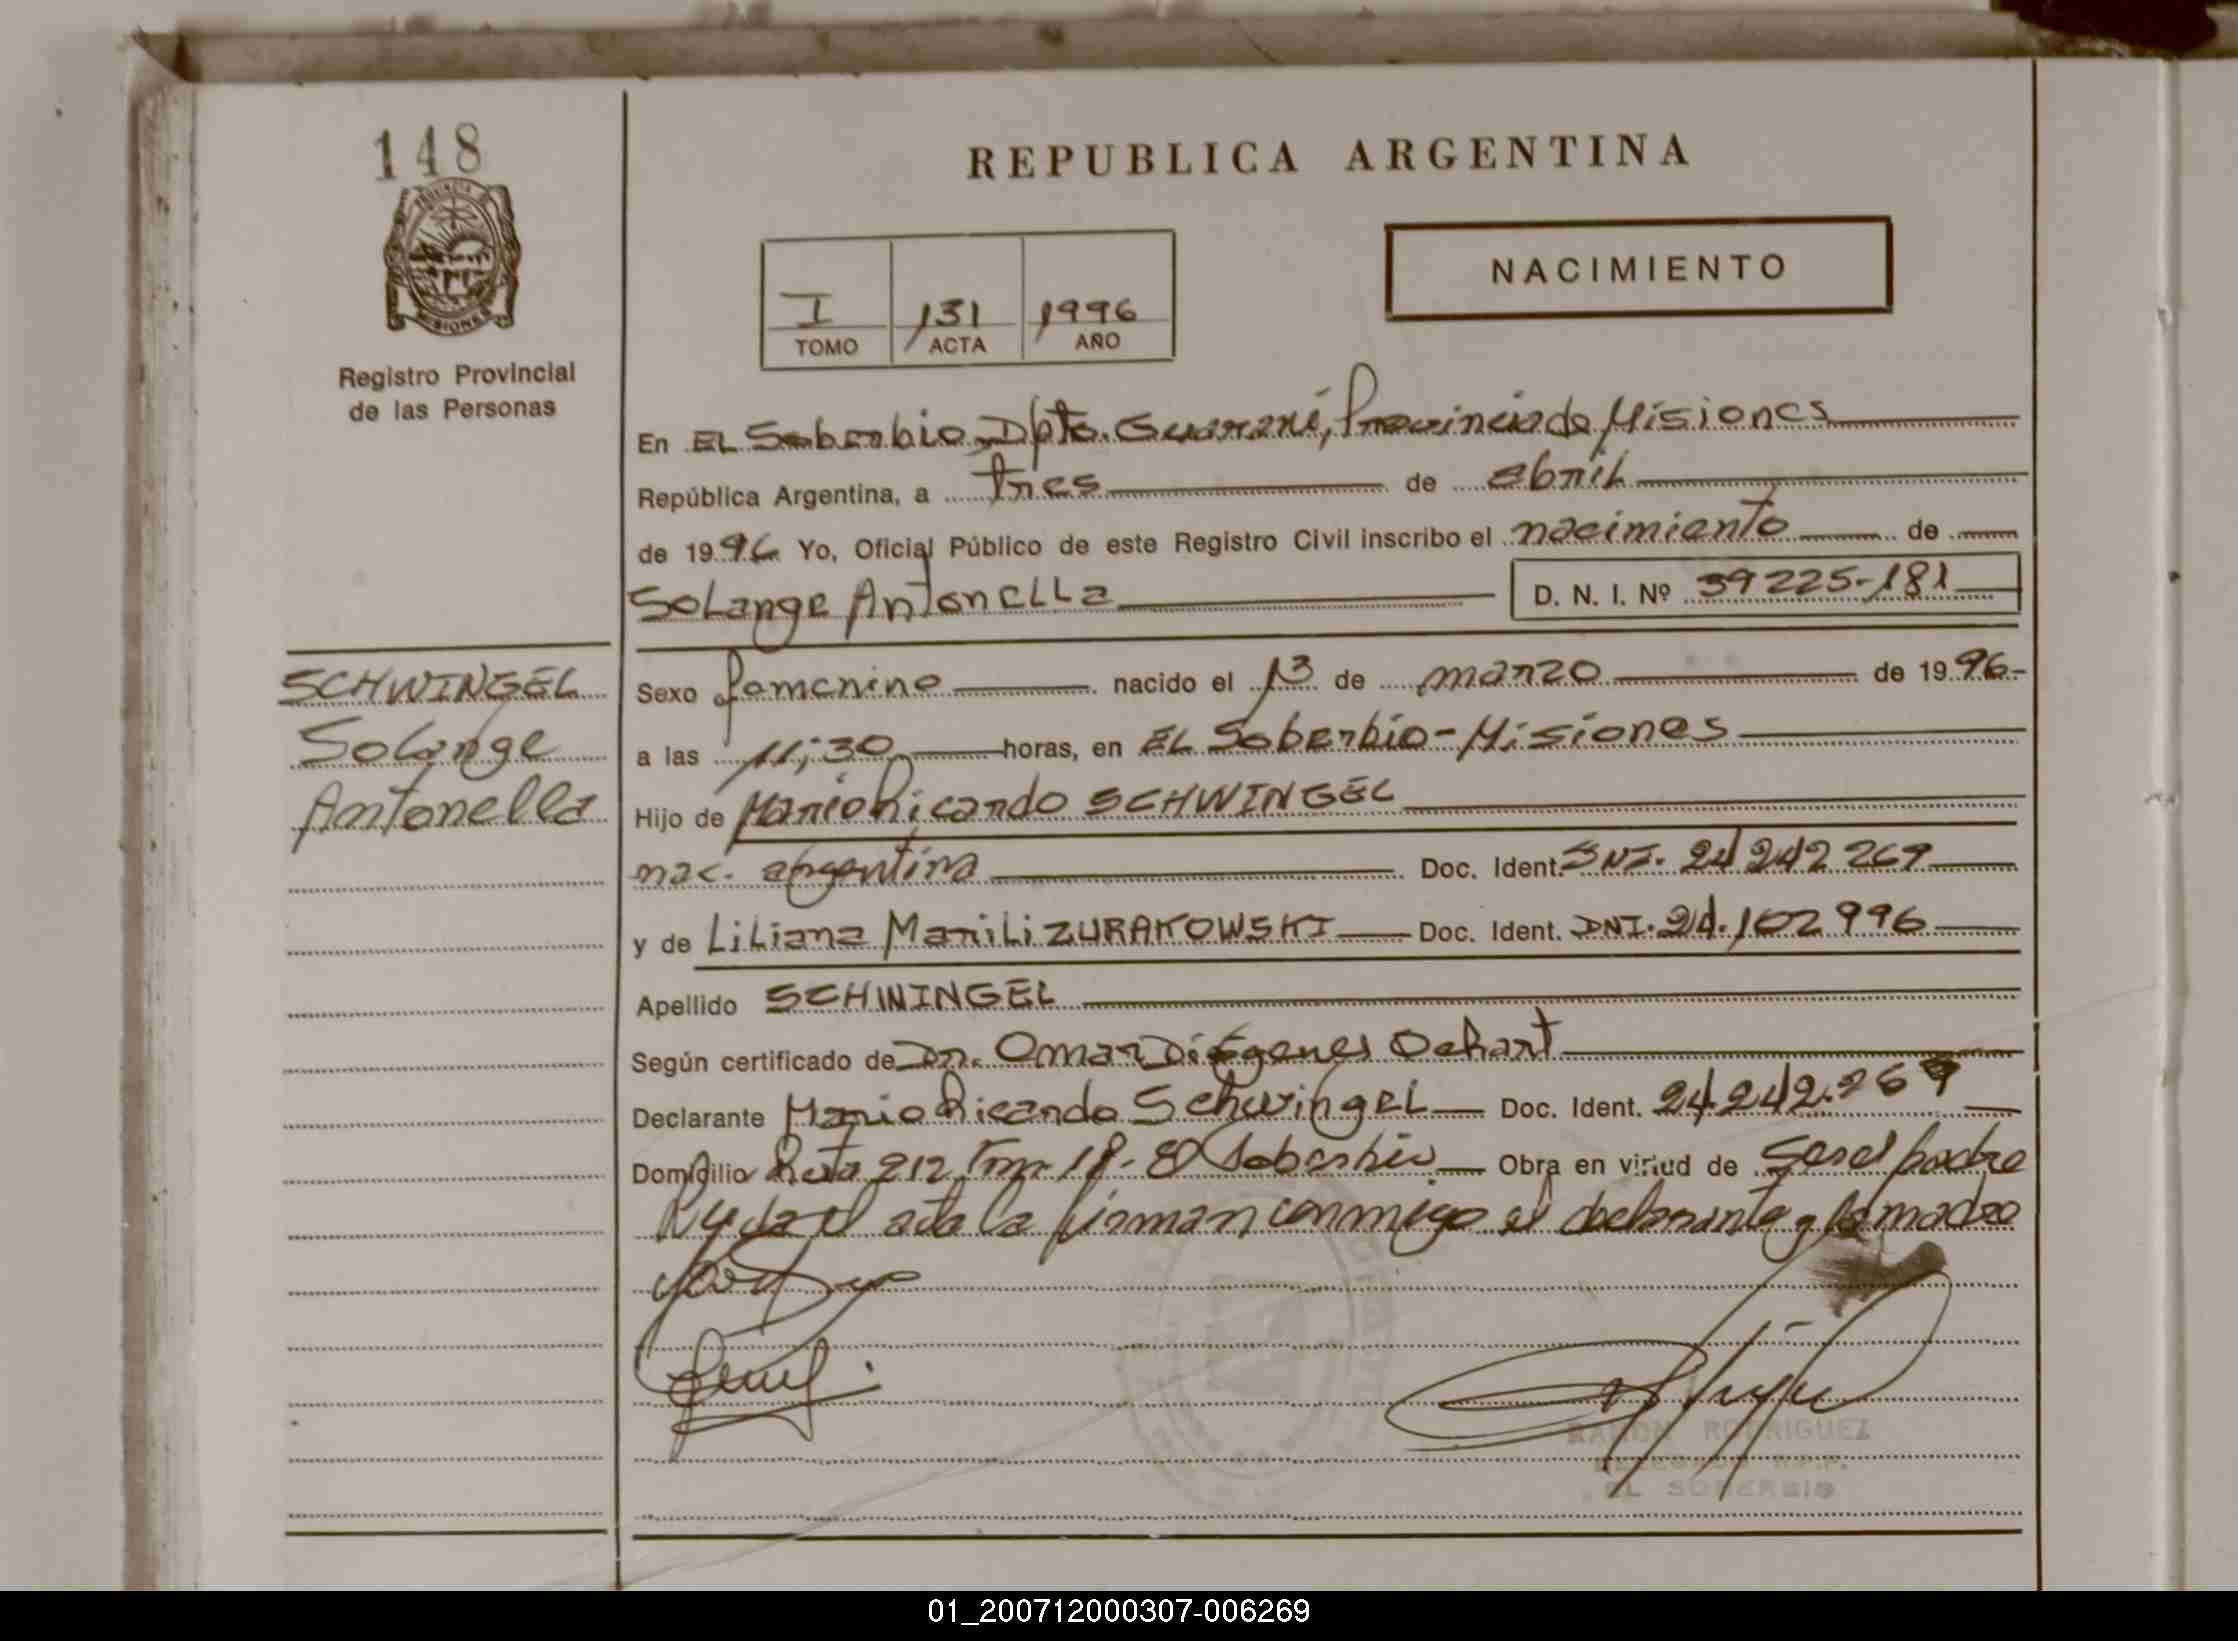 148
PROVINCIA DE
MISIONES
Registro Provincial
de las Personas
REPUBLICA ARGENTINA
NACIMIENTO
I 131 1996
TOMO ACTA AÑO
En EL Soberbio, Dpto. Guaraní, Provincia de Misiones
República Argentina, a tres de abril
de 1996 Yo, Oficial Público de este Registro Civil inscribo el nacimiento de
Solange Antonella D. N. I. Nº 39225-181
SCHWINGEL
Solange
Antonella
Sexo femenino nacido el 13 de marzo de 1996-
a las 11;30 horas, en EL Soberbio-Misiones
Hijo de Mario Ricardo SCHWINGEL
nac. argentina Doc. Ident. DNI. 24242269
y de Liliana Marili ZURAKOWSKI Doc. Ident. DNI. 24.102996
Apellido SCHWINGEL
Según certificado de Dr. Omar Diógenes Ochart
Declarante Mario Ricardo Schwingel Doc. Ident. 24.242.269
Domicilio Ruta 212 Km 18-El Soberbio Obra en virtud de Ser el padre
Leyda el acta la firman conmigo el declarante y la madre
RAMON RODRIGUEZ
EL SOBERBIO
01_200712000307-006269